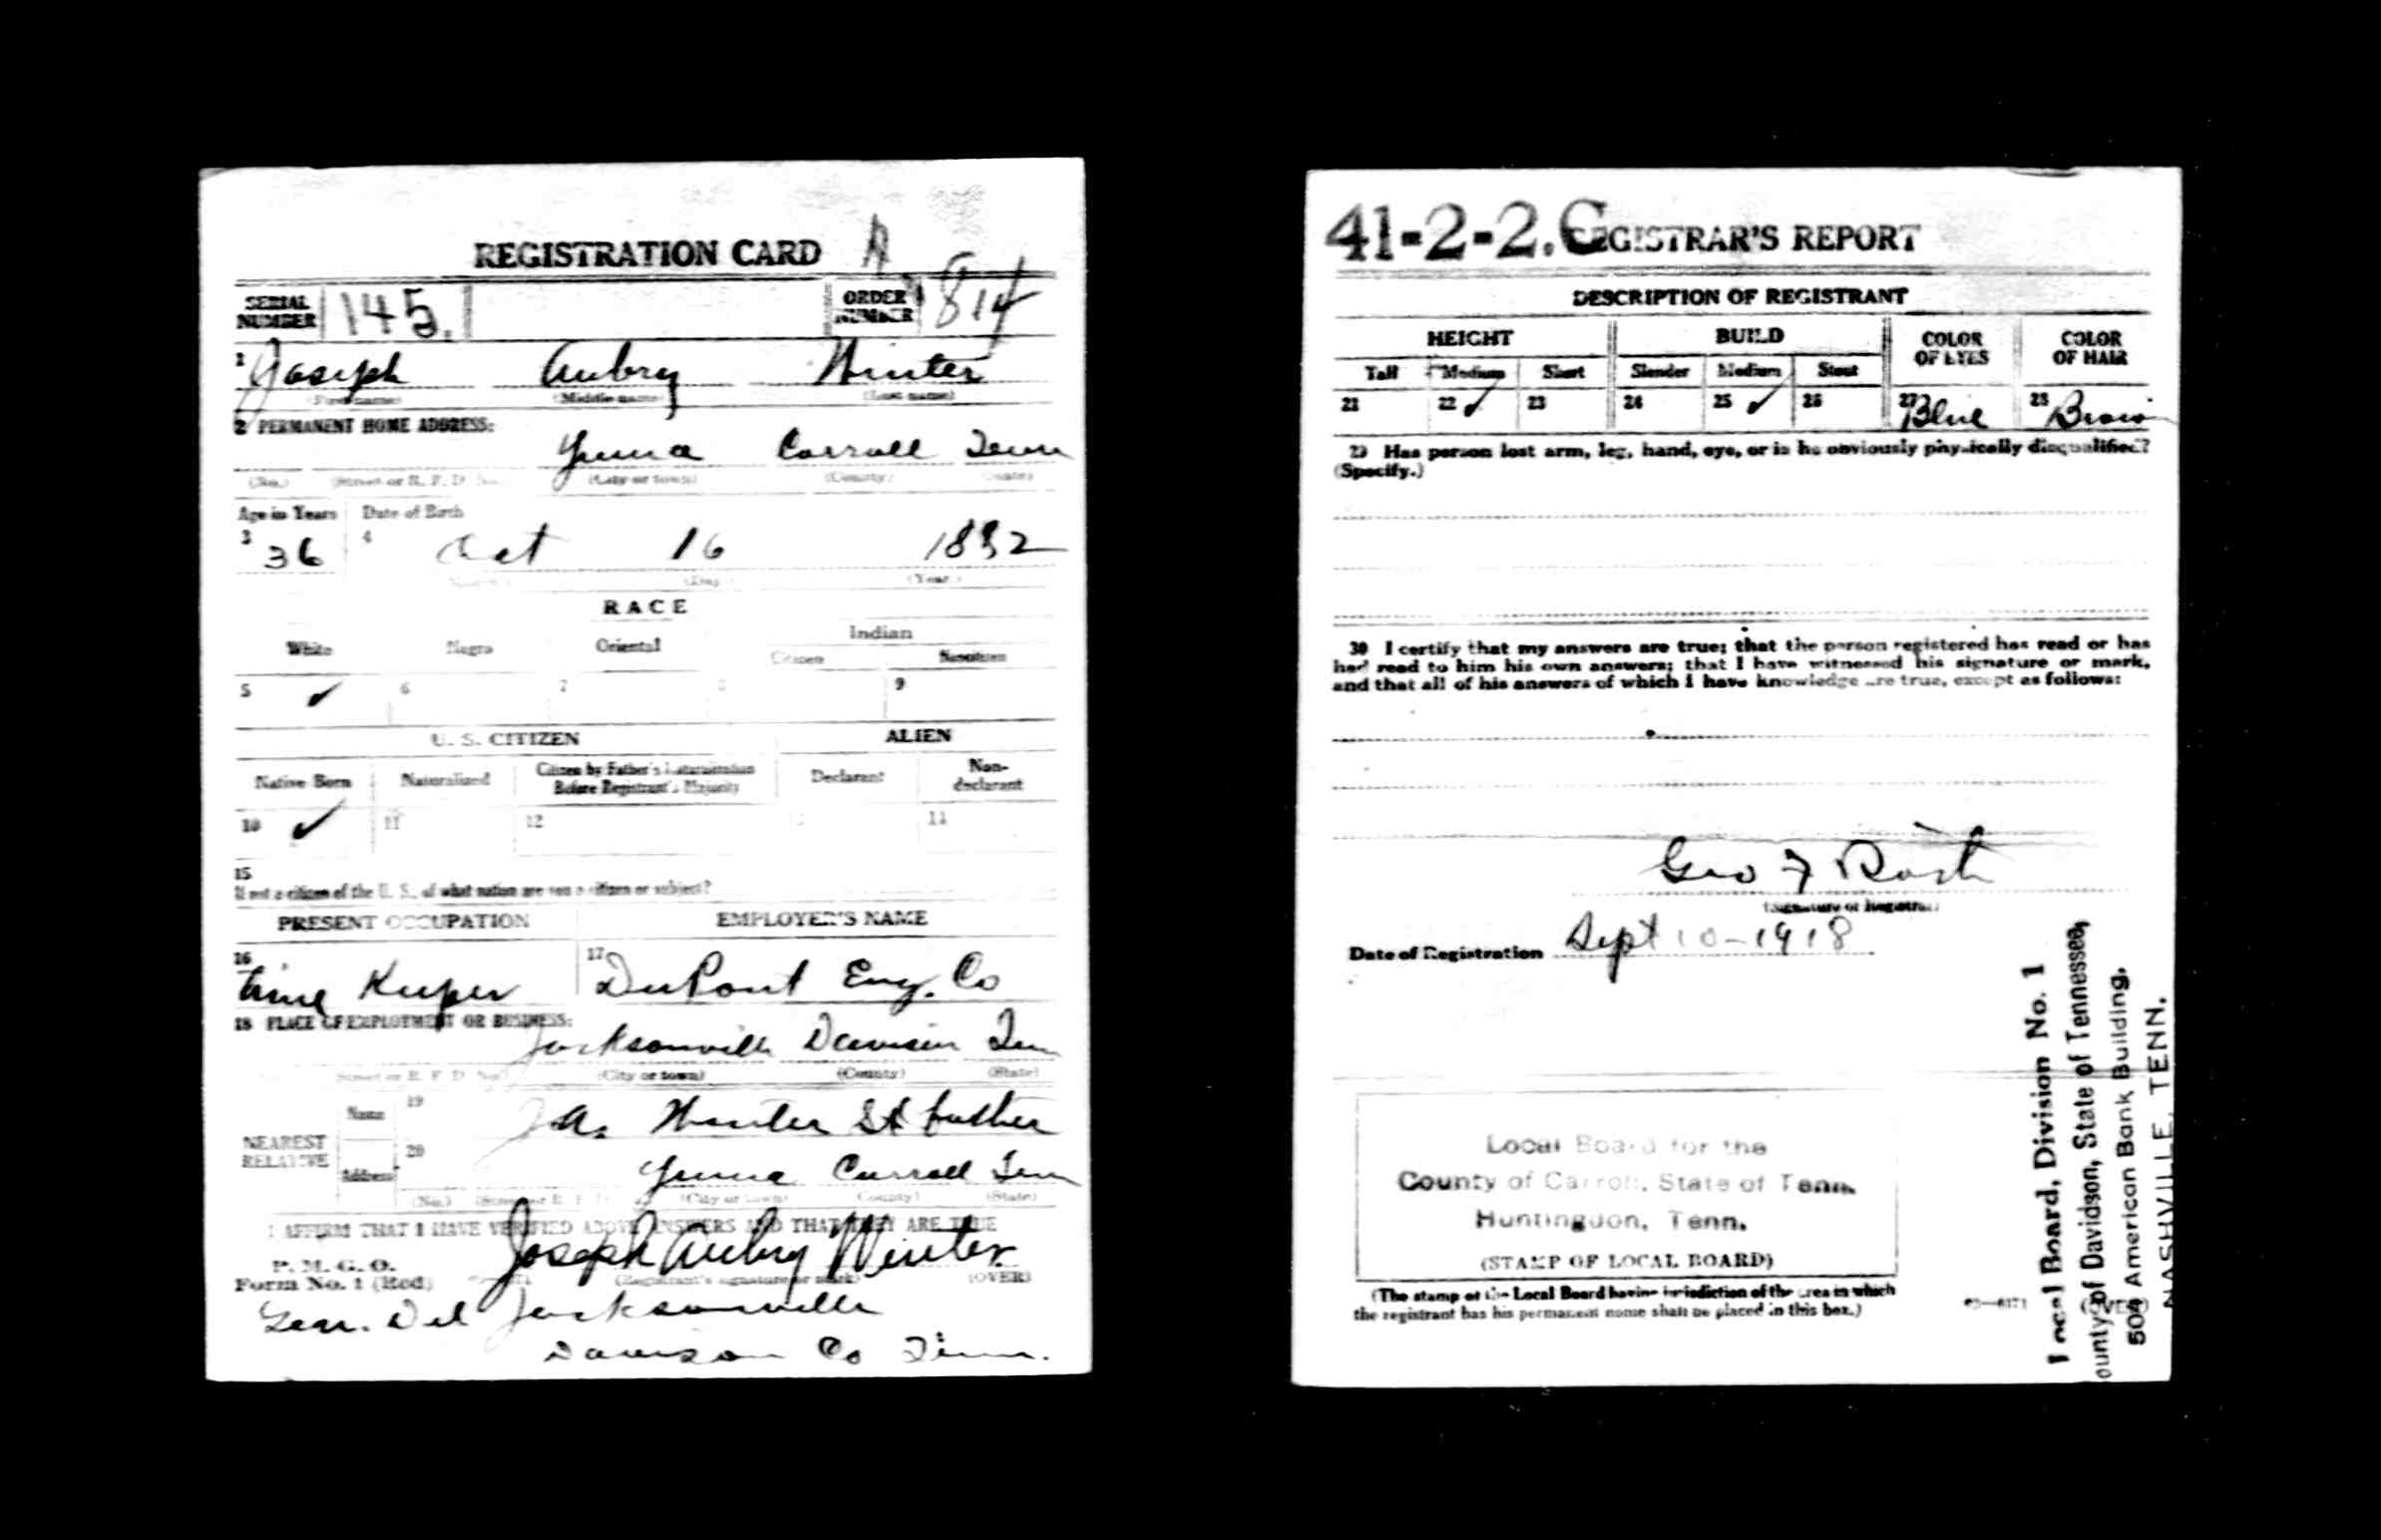 REGISTRATION CARD A
SERIAL NUMBER 145. ORDER NUMBER 814
1 Joseph Aubry Winter
(First name) (Middle name) (Last name)
2 PERMANENT HOME ADDRESS:
Yuma Carroll Tenn
(No.) (Street or R. F. D. No.) (City or town) (County) (State)
Age in Years Date of Birth
3 36 4 Oct 16 1882
(Month) (Day) (Year)
RACE
White Negro Oriental Indian
Citizen Noncitizen
5 ✓ 6 7 8 9
U. S. CITIZEN ALIEN
Native Born Naturalized Citizen by Father's Naturalization Before Registrant's Majority Declarant Non-declarant
10 ✓ 11 12 14
15
If not a citizen of the U. S., of what nation are you a citizen or subject?
PRESENT OCCUPATION EMPLOYER'S NAME
16 Time Keeper 17 DuPont Eng. Co
18 PLACE OF EMPLOYMENT OR BUSINESS:
Jacksonville Davison Ten
(Street or R. F. D. No.) (City or town) (County) (State)
NEAREST RELATIVE
Name 19 J A. Winter father
Address 20 Yuma Carroll Ten
(No.) (Street or R. F. D. No.) (City or town) (County) (State)
I AFFIRM THAT I HAVE VERIFIED ABOVE ANSWERS AND THAT THEY ARE TRUE
P. M. G. O.
Form No. 1 (Red) Joseph Aubry Winter
(Registrant's signature or mark) (OVER)
Gen. Del Jacksonville
Davison Co Tenn.
41-2-2.C
REGISTRAR'S REPORT
DESCRIPTION OF REGISTRANT
HEIGHT BUILD COLOR OF EYES COLOR OF HAIR
Tall Medium Short Slender Medium Stout
21 22 ✓ 23 24 25 ✓ 26 27 Blue 28 Brown
29 Has person lost arm, leg, hand, eye, or is he obviously physically disqualified?
(Specify.)
30 I certify that my answers are true; that the person registered has read or has
had read to him his own answers; that I have witnessed his signature or mark,
and that all of his answers of which I have knowledge are true, except as follows:
Geo F
(Signature of Registrar)
Date of Registration Sept 10-1918
Local Board for the
County of Carroll, State of Tenn.
Huntingdon, Tenn.
(STAMP OF LOCAL BOARD)
(The stamp of the Local Board having jurisdiction of the area in which
the registrant has his permanent home shall be placed in this box.)
(OVER)
Local Board, Division No. 1
ounty of Davidson, State of Tennessee,
504 American Bank Building,
NASHVILLE, TENN.